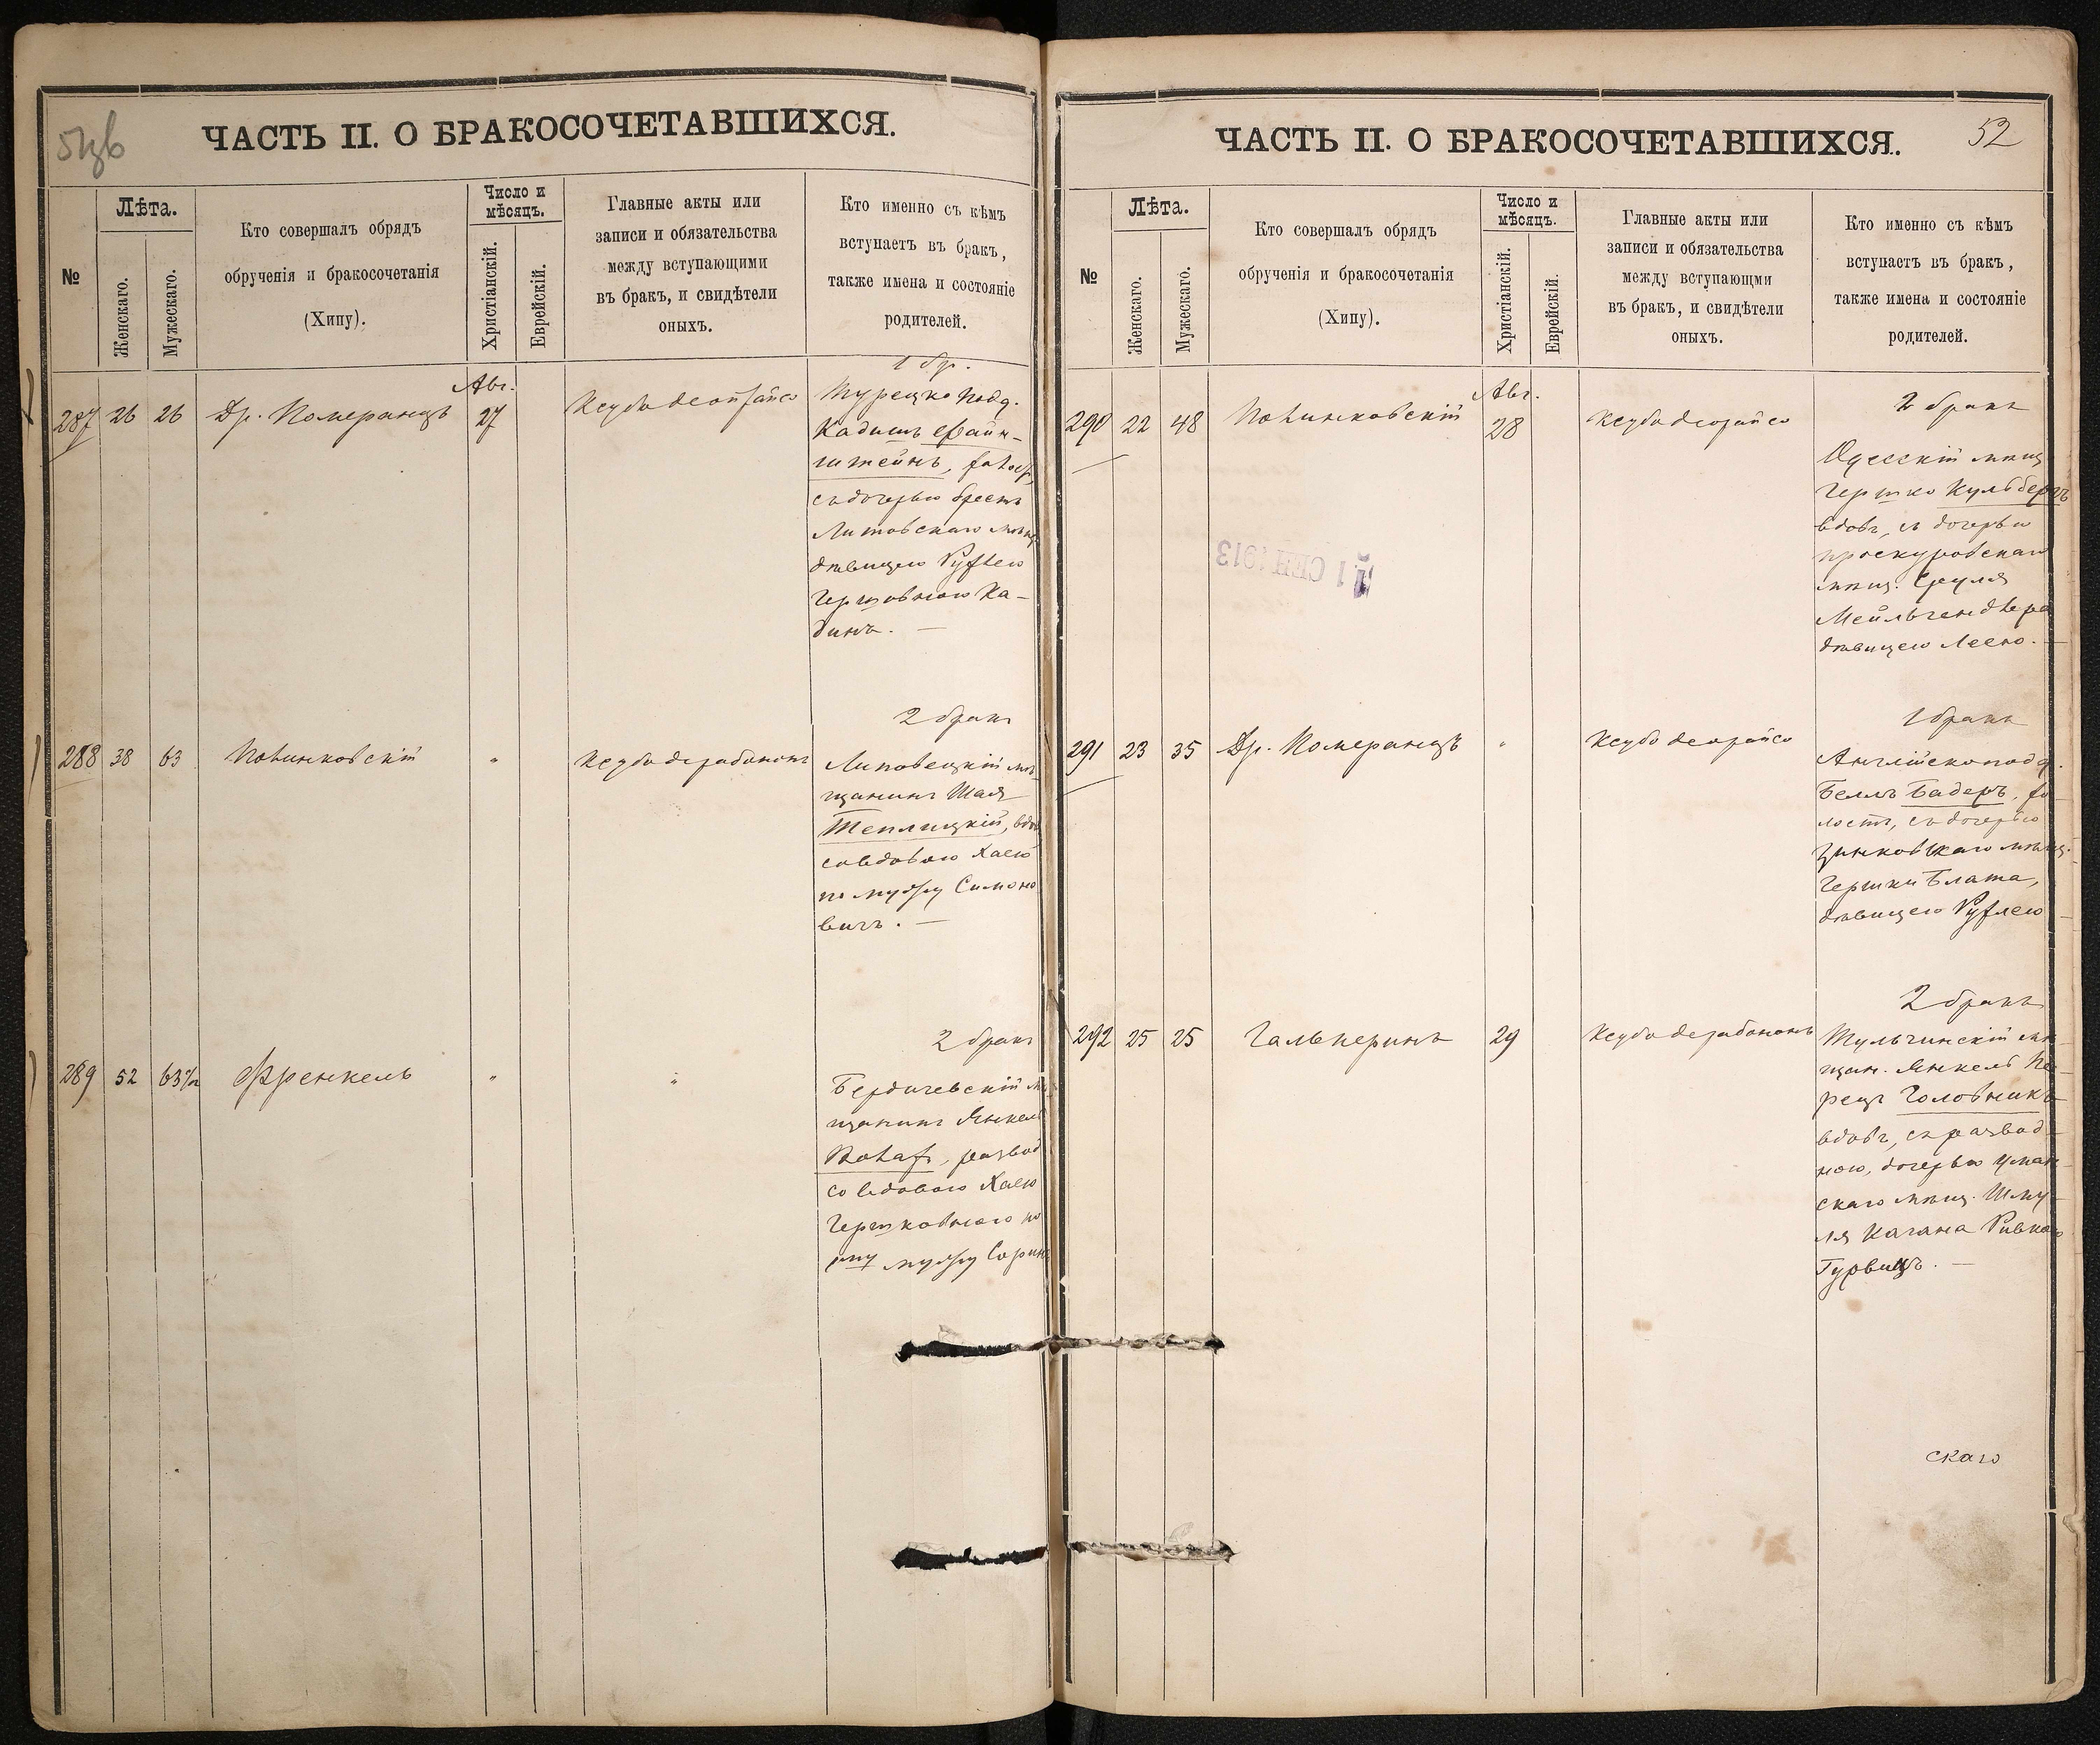 51об
ЧАСТЬ II. О БРАКОСОЧЕТАВШИХСЯ.
№
Лѣта.
Женскаго.
Мужескаго.
Кто совершалъ обрядъ
обрученія и бракосочетанія
(Хипу).
Число и
мѣсяцъ.
Христіанскій.
Еврейскій.
Главные акты или
записи и обязательства
между вступающими
въ бракъ, и свидѣтели
оныхъ.
Кто именно съ кѣмъ
вступаетъ въ бракъ,
также имена и состояніе
родителей.
287 26 26 Др. Померанцъ
Авг.
27
Ксубо деорайсо
1 бр.
Турецко подд.
Кадишъ Файн-
штейнъ, холост,
съ дочерью Брестъ
Литовскаго мѣщ.
дѣвицею Рухлею
Гершовною Ка-
динъ. —
288 38 63
"
Ксубо дерабононъ
2 бракъ
Липовецкій мѣ-
щанинъ Шая
Теплицкій, вдов.
со вдовою Хаею
по мужу Симоно
вичъ. —
289 52 63½ Френкель
"
"
2 бракъ
Бердичевскій мѣ
щанинъ Янкель
развод
со вдовою Хаею
Гершковною по
мужу
ЧАСТЬ II. О БРАКОСОЧЕТАВШИХСЯ.
52
№
Лѣта.
Женскаго.
Мужескаго.
Кто совершалъ обрядъ
обрученія и бракосочетанія
(Хипу).
Число и
мѣсяцъ.
Христіанскій.
Еврейскій.
Главные акты или
записи и обязательства
между вступающми
въ бракъ, и свидѣтели
оныхъ.
Кто именно съ кѣмъ
вступаетъ въ бракъ,
также имена и состояніе
родителей.
290 22 48
Авг.
28
Ксубо деорайсо
2 бракъ
Одесскій мѣщ.
Гершко Кульбергъ
вдовъ, съ дочерью
проскуровскаго
мѣщ. Сруля
дѣвицею Леею. —
1 СЕН 1913
291 23 35 Др. Померанцъ
"
Ксубо деорайсо
1 бракъ
Англійско подд.
Бадеръ, хо-
лостъ, съ дочерью
Зиньковскаго мѣщ.
Гершки Блата,
дѣвицею Рухлею —
292 25 25 Гальперинъ
29
Ксубо дерабононъ
2 бракъ
Тульчинскій мѣ-
щан. Янкель Пе-
рецъ Головникъ
вдовъ, съ развод-
ною, дочерью Уман-
скаго мѣщ. Шму-
ля Кагана Ривкою
Гурвицъ. —
скаго